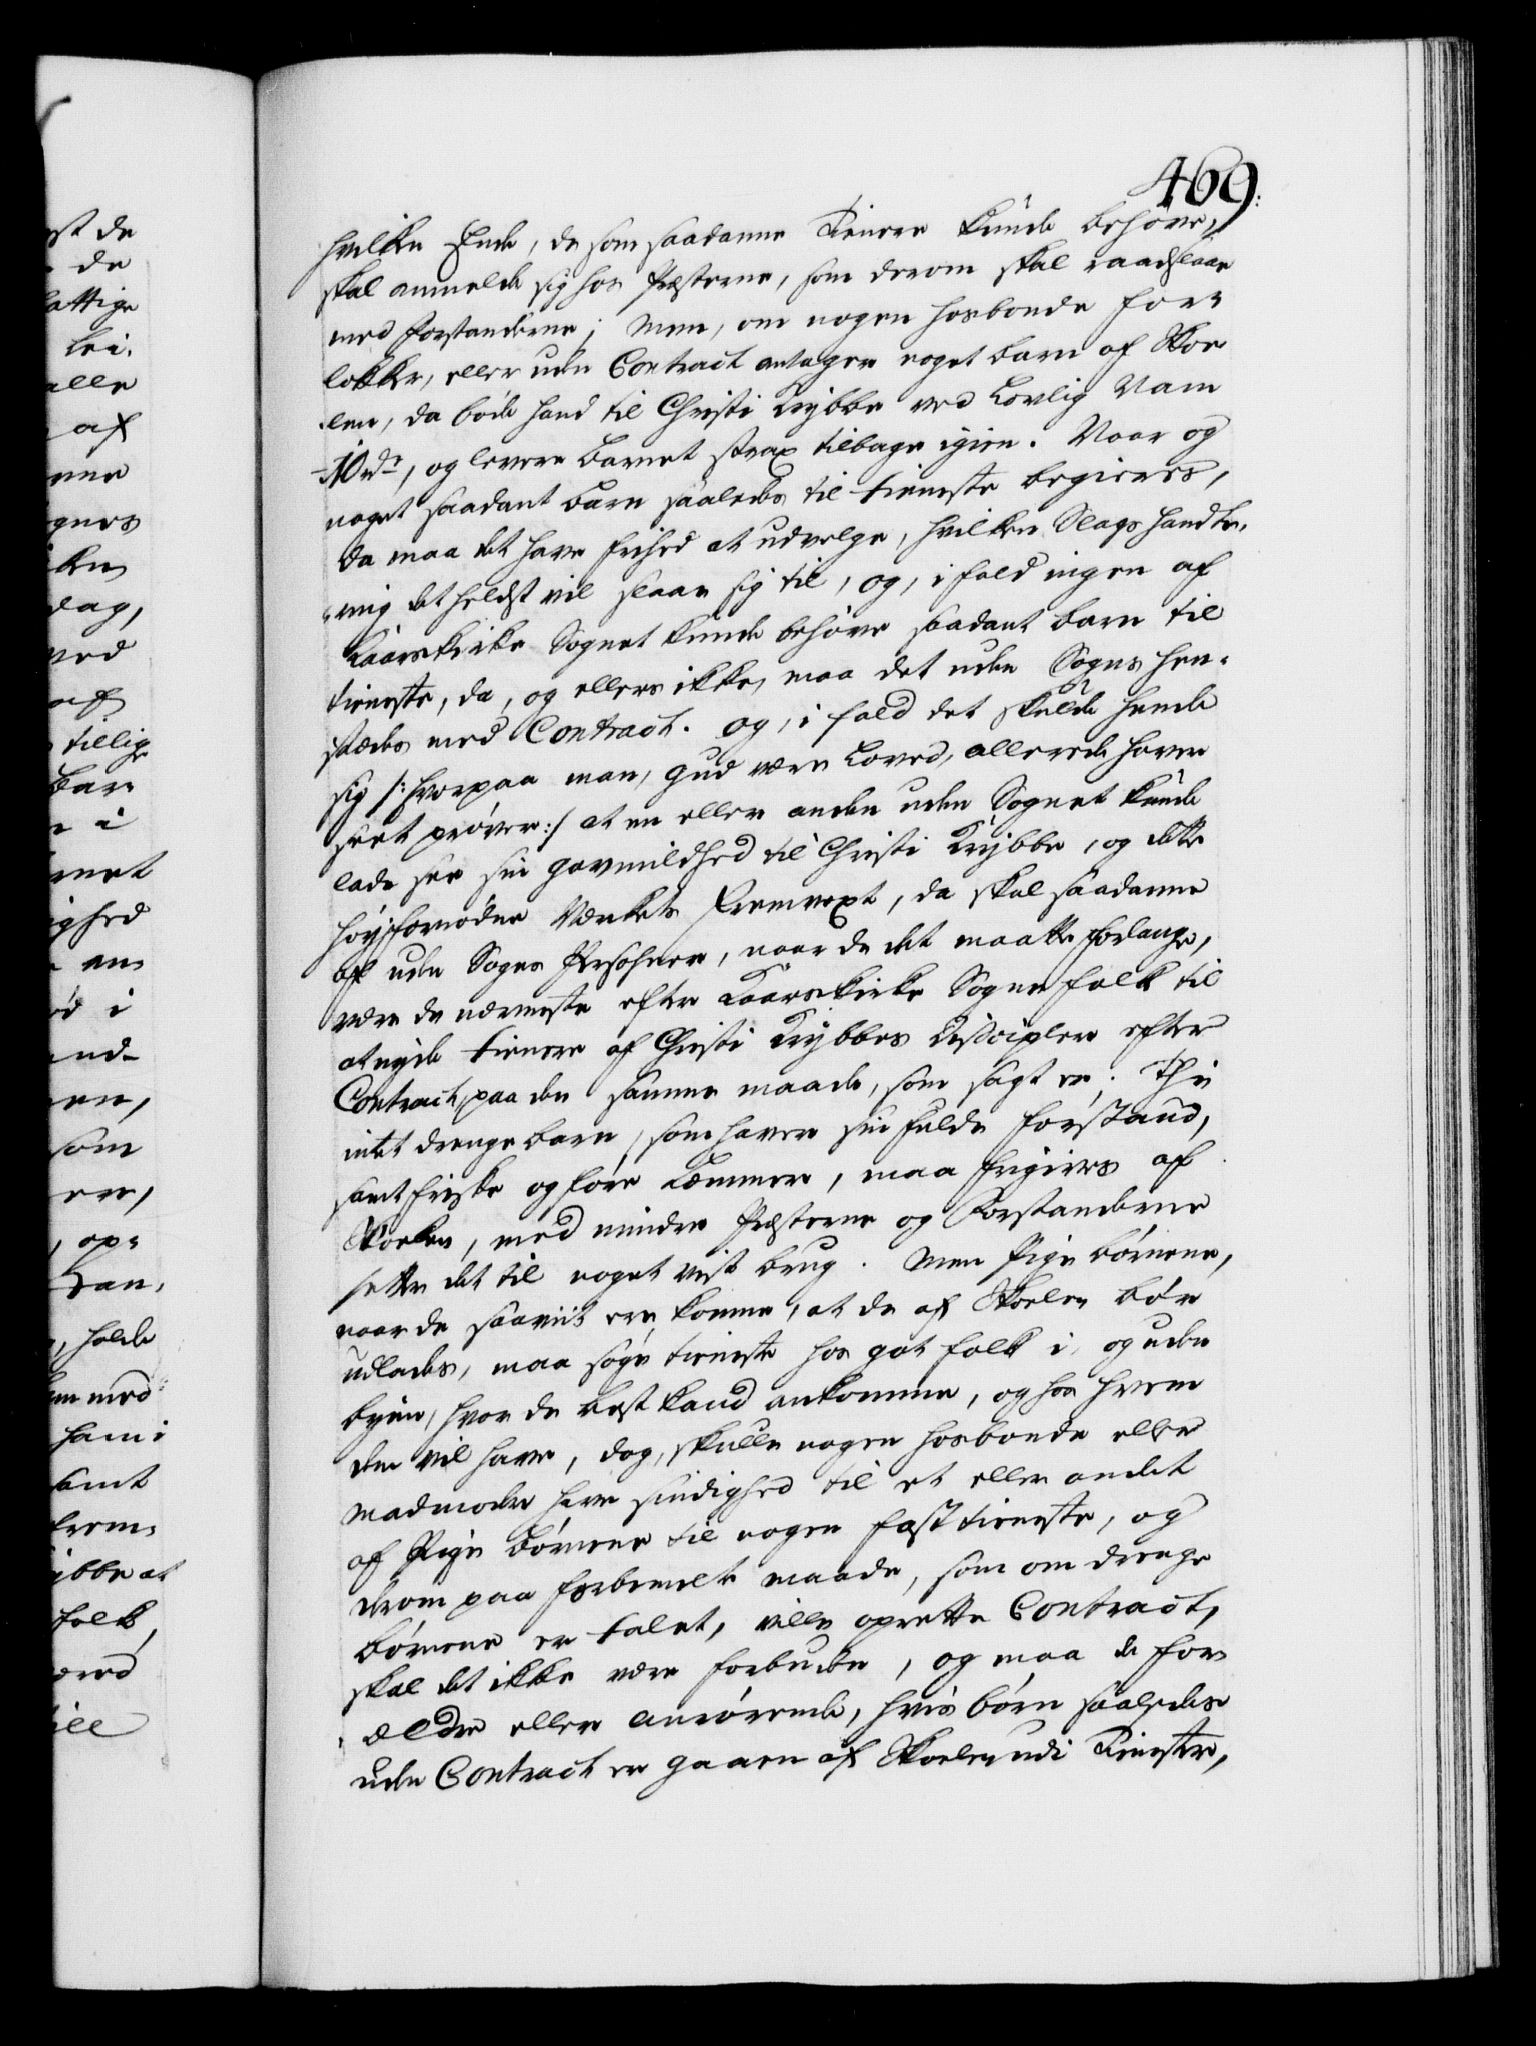 469.
hvilken Ende, de som saadanne Tienere kunde behöve,
skal anmelde sig hos Præsterne, som derom skal raadslaae
med Forstanderne; Men, om nogen Hosbonde for-
lokker, eller uden Contract antager noget barn af Skoe
len, da böde hand til Christi Krybbe ved Lovlig Nam
10 rdr, og levere barnet strax tilbage igien. Naar og
noget saadant barn saaledes til tieneste begieres,
da maa det have frihed at udvelge, hvilken Slags handte-
ring det helst vil slaae sig til, og, i fald ingen af
Kaarskirke Sognet kunde behöve saadant barn til
tieneste, da, og ellers ikke, maa det uden Sogns hen-
stædes med Contract. og, i fald det skulde hende
sig /: hvorpaa man, Gud være Loved, allerede haver
seet pröver :/ at en eller anden uden Sognet kunde
lade see sin gavmildhed til Christi Krybbe, og dette
höyfornödne Værkets Fremvext, da skal saadanne
af uden Sogns Persohner, naar de det maatte forlange,
være de nærmeste efter Kaarskirke Sogne folk til
at nyde tienere af Christi Krybbes Disciplene efter
Contract, paa den samme maade, som sagt er. Thi
intet drengebarn, som haver sin fulde forstand,
samt friske og före Lemmer, maa frigives af
Skoelen, med mindre Præsterne og Forstanderne
sette det til noget vist brug. Men Pige börnene,
naar de saavit ere komne, at de af Skoelen bör
udlades, maa söge tieneste hos got folk i, og uden
byen, hvor de best kand ankomme, og hos hvem
dem vil have, dog, skulle nogen hosbonde eller
Madmoder have sindighed til et eller andet
af Pige börnene til nogen fast tieneste, og
derom paa forbemelte maade, som om drenge
börnene er talet, ville oprette Contract,
skal det ikke være forbuden, og maa de for
ældre eller anrörende, hvis börn saaledes
uden Contract er gaaen af Skoelen udi Tieneste,